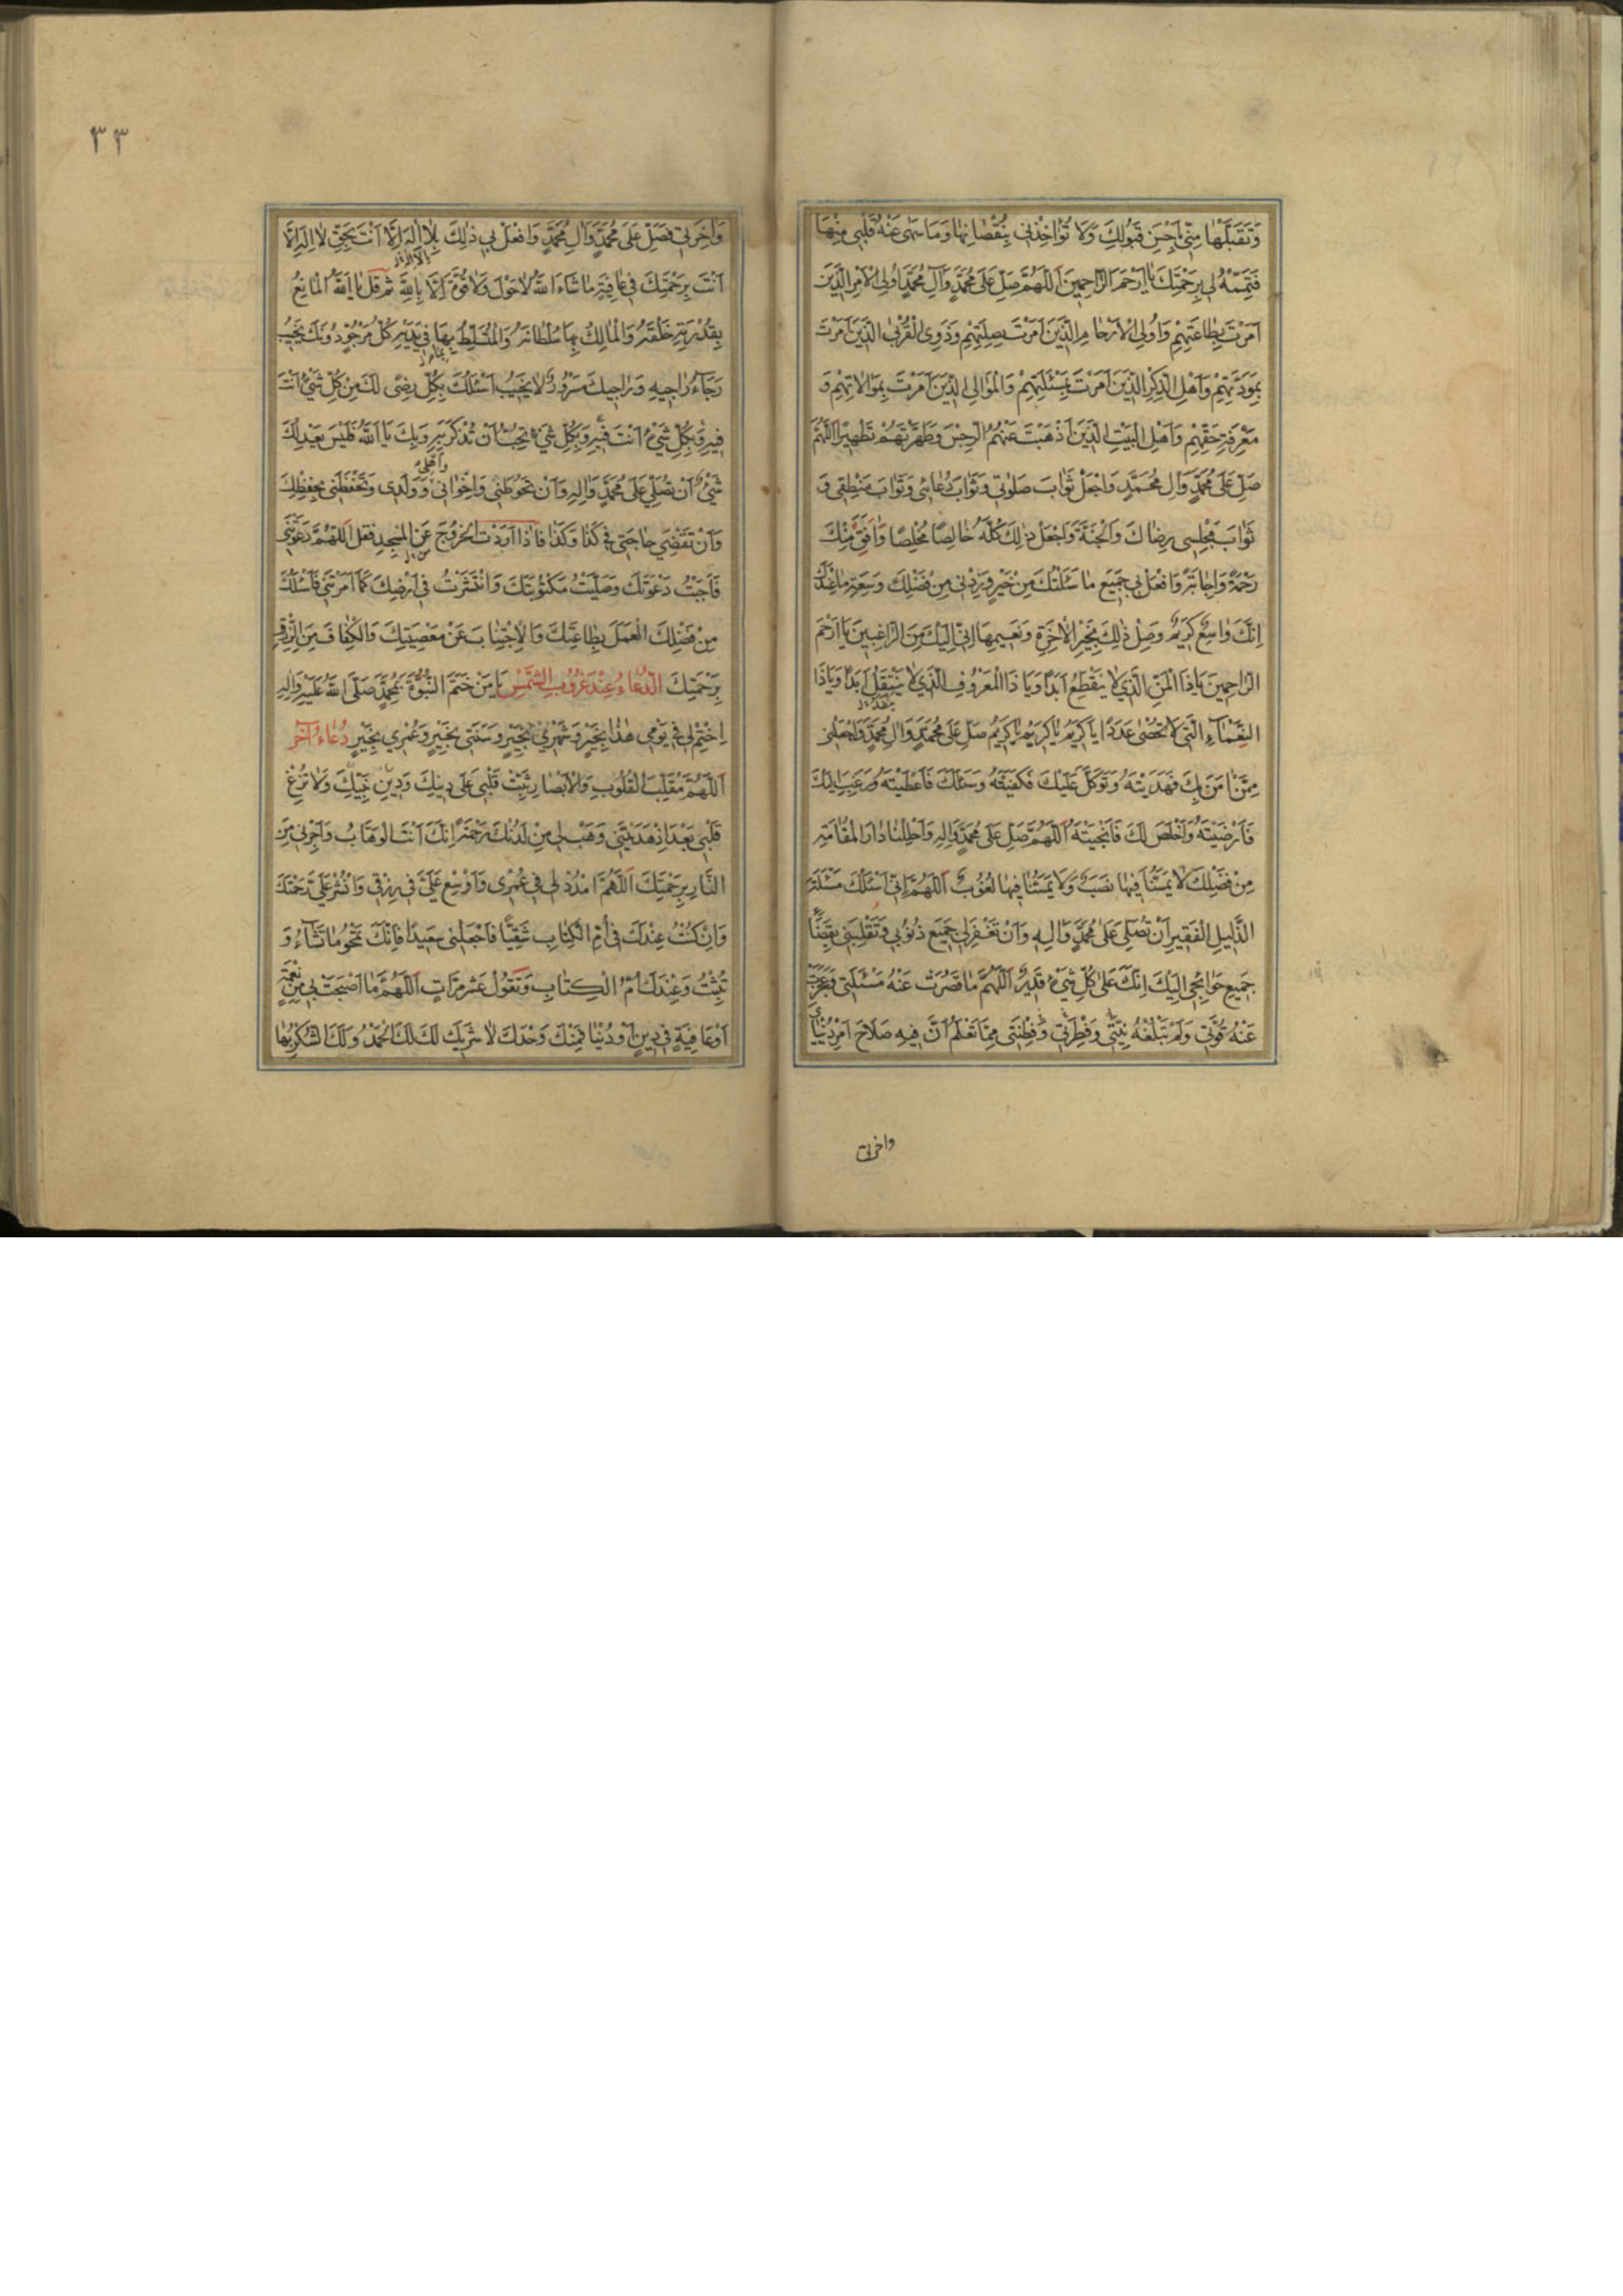 وَتَقَبَّلْهَا مِنِّي بِاَحْسَنِ قَبُولِكَ وَلَا تُؤَاخِذْنِي بِنُقْصَانِهَا وَمَا سَهَى عَنْهُ قَلْبِي مِنْهَا
فَتَمِّمْهُ لِي بِرَحْمَتِكَ يَا اَرْحَمَ الرَّاحِمِينَ اَللّٰهُمَّ صَلِّ عَلَى مُحَمَّدٍ وَآلِ مُحَمَّدٍ اُولِي الْاَمْرِ الَّذِينَ
اَمَرْتَ بِطَاعَتِهِمْ وَاُولِي الْاَرْحَامِ الَّذِينَ اَمَرْتَ بِصِلَتِهِمْ وَذَوِي الْقُرْبَى الَّذِينَ اَمَرْتَ
بِمَوَدَّتِهِمْ وَاَهْلِ الذِّكْرِ الَّذِينَ اَمَرْتَ بِمَسْئَلَتِهِمْ وَالْمَوَالِي الَّذِينَ اَمَرْتَ بِمُوَالَاتِهِمْ وَ
مَعْرِفَةِ حَقِّهِمْ وَاَهْلِ الْبَيْتِ الَّذِينَ اَذْهَبْتَ عَنْهُمُ الرِّجْسَ وَطَهَّرْتَهُمْ تَطْهِيرًا اَللّٰهُمَّ
صَلِّ عَلَى مُحَمَّدٍ وَآلِ مُحَمَّدٍ وَاجْعَلْ ثَوَابَ صَلَوٰتِي وَثَوَابَ دُعَائِي وَثَوَابَ مَنْطِقِي وَ
ثَوَابَ مَجْلِسِي رِضَاكَ وَالْجَنَّةَ وَاجْعَلْ ذٰلِكَ كُلَّهُ خَالِصًا مُخْلِصًا وَافَقَ مِنْكَ
رَحْمَةً وَاِجَابَةً وَافْعَلْ بِي جَمِيعَ مَا سَئَلْتُكَ مِنْ خَيْرٍ وَزِدْنِي مِنْ فَضْلِكَ وَسَعَةِ مَا عِنْدَكَ
اِنَّكَ وَاسِعٌ كَرِيمٌ وَصِلْ ذٰلِكَ بِخَيْرِ الْاٰخِرَةِ وَنَعِيمِهَا اِنِّي اِلَيْكَ مِنَ الرَّاغِبِينَ يَا اَرْحَمَ
الرَّاحِمِينَ يَا ذَا الْمَنِّ الَّذِي لَا يَنْقَطِعُ اَبَدًا وَيَا ذَا الْمَعْرُوفِ الَّذِي لَا يَنْتَقِلُ اَبَدًا وَيَا ذَا
النَّعْمَاءِ الَّتِي لَا تُحْصَى عَدَدًا يَا كَرِيمُ يَا كَرِيمُ يَا كَرِيمُ صَلِّ عَلَى مُحَمَّدٍ وَآلِ مُحَمَّدٍ وَاجْعَلْنِي
مِمَّنْ اٰمَنَ بِكَ فَهَدَيْتَهُ وَتَوَكَّلَ عَلَيْكَ فَكَفَيْتَهُ وَسَئَلَكَ فَاَعْطَيْتَهُ وَرَغِبَ اِلَيْكَ
فَاَرْضَيْتَهُ وَاَخْلَصَ لَكَ فَاَنْجَيْتَهُ اَللّٰهُمَّ صَلِّ عَلَى مُحَمَّدٍ وَآلِهِ وَاَحْلِلْنَا دَارَ الْمُقَامَةِ
مِنْ فَضْلِكَ لَا يَمَسُّنَا فِيهَا نَصَبٌ وَلَا يَمَسُّنَا فِيهَا لُغُوبٌ اَللّٰهُمَّ اِنِّي اَسْئَلُكَ مَسْئَلَةَ
الذَّلِيلِ الْفَقِيرِ اَنْ تُصَلِّيَ عَلَى مُحَمَّدٍ وَآلِهِ وَاَنْ تَغْفِرَ لِي جَمِيعَ ذُنُوبِي وَتَقْلِبَنِي بِقَضَاءِ
جَمِيعِ حَوَائِجِي اِلَيْكَ اِنَّكَ عَلَى كُلِّ شَيْءٍ قَدِيرٌ اَللّٰهُمَّ مَا قَصُرَتْ عَنْهُ مَسْئَلَتِي وَعَجَزَتْ
عَنْهُ قُوَّتِي وَلَمْ تَبْلُغْهُ نِيَّتِي وَفِطْرَتِي وَفِطْنَتِي مِمَّا تَعْلَمُ اَنَّ فِيهِ صَلَاحَ اَمْرِ دُنْيَايَ
واخرتی
٣٣
وَاٰخِرَتِي فَصَلِّ عَلَى مُحَمَّدٍ وَآلِ مُحَمَّدٍ وَافْعَلْ بِي ذٰلِكَ بِلَا اِلٰهَ اِلَّا اَنْتَ بِحَقِّ لَا اِلٰهَ اِلَّا
اَنْتَ بِرَحْمَتِكَ فِي عَافِيَةٍ مَا شَاءَ اللّٰهُ لَا حَوْلَ وَلَا قُوَّةَ اِلَّا بِاللّٰهِ ثم قل يَا اَللّٰهُ الْمَانِعُ
بِقُدْرَتِهِ خَلْقَهُ وَالْمَالِكُ بِهَا سُلْطَانَهُ وَالْمُتَسَلِّطُ بِهَا فِي يَدَيْهِ كُلُّ مَرْجُوٍّ دُونَكَ يُخَيِّبُ
رَجَاءَ رَاجِيهِ وَرَاجِيكَ مَسْرُورٌ لَا يَخِيبُ اَسْئَلُكَ بِكُلِّ رِضًى لَكَ مِنْ كُلِّ شَيْءٍ اَنْتَ
فِيهِ وَبِكُلِّ شَيْءٍ اَنْتَ فِيهِ وَبِكُلِّ شَيْءٍ تُحِبُّ اَنْ تُذْكَرَ بِهِ وَبِكَ يَا اَللّٰهُ فَلَيْسَ يَعْدِلُكَ
شَيْءٌ اَنْ تُصَلِّيَ عَلَى مُحَمَّدٍ وَآلِهِ وَاَنْ تَحُوطَنِي وَاِخْوَانِي وَاَهْلِي وَوَلَدِي وَتَحْفَظَنِي بِحِفْظِكَ
وَاَنْ تَقْضِيَ حَاجَتِي فِي كَذَا وَكَذَا فَاِذَا اَرَدْتَ الْخُرُوجَ عَنِ الْمَسْجِدِ فَقُلْ اَللّٰهُمَّ دَعَوْتَنِي
فَاَجَبْتُ دَعْوَتَكَ وَصَلَّيْتُ مَكْتُوبَتَكَ وَانْتَشَرْتُ فِي اَرْضِكَ كَمَا اَمَرْتَنِي فَاَسْئَلُكَ
مِنْ فَضْلِكَ الْعَمَلَ بِطَاعَتِكَ وَالْاِجْتِنَابَ عَنْ مَعْصِيَتِكَ وَالْكَفَافَ مِنَ الرِّزْقِ
بِرَحْمَتِكَ الدُّعَاءُ عِنْدَ غُرُوبِ الشَّمْسِ يَا مَنْ خَتَمَ النُّبُوَّةَ بِمُحَمَّدٍ صَلَّى اللّٰهُ عَلَيْهِ وَآلِهِ
اِخْتِمْ لِي فِي يَوْمِي هٰذَا بِخَيْرٍ وَشَهْرِي بِخَيْرٍ وَسَنَتِي بِخَيْرٍ وَعُمْرِي بِخَيْرٍ دُعَاءٌ آخَر
اَللّٰهُمَّ مُقَلِّبَ الْقُلُوبِ وَالْاَبْصَارِ ثَبِّتْ قَلْبِي عَلَى دِينِكَ وَدِينِ نَبِيِّكَ وَلَا تُزِغْ
قَلْبِي بَعْدَ اِذْ هَدَيْتَنِي وَهَبْ لِي مِنْ لَدُنْكَ رَحْمَةً اِنَّكَ اَنْتَ الْوَهَّابُ وَاَجِرْنِي مِنَ
النَّارِ بِرَحْمَتِكَ اَللّٰهُمَّ امْدُدْ لِي فِي عُمْرِي وَاَوْسِعْ عَلَيَّ فِي رِزْقِي وَانْشُرْ عَلَيَّ رَحْمَتَكَ
وَاِنْ كُنْتُ عِنْدَكَ فِي اُمِّ الْكِتَابِ شَقِيًّا فَاجْعَلْنِي سَعِيدًا فَاِنَّكَ تَمْحُو مَا تَشَاءُ وَ
تُثْبِتُ وَعِنْدَكَ اُمُّ الْكِتَابِ وَتَقُولُ عَشْرَ مَرَّاتٍ اَللّٰهُمَّ مَا اَصْبَحَتْ بِي مِنْ نِعْمَةٍ
اَوْ عَافِيَةٍ فِي دِينٍ اَوْ دُنْيَا فَمِنْكَ وَحْدَكَ لَا شَرِيكَ لَكَ لَكَ الْحَمْدُ وَلَكَ الشُّكْرُ بِهَا